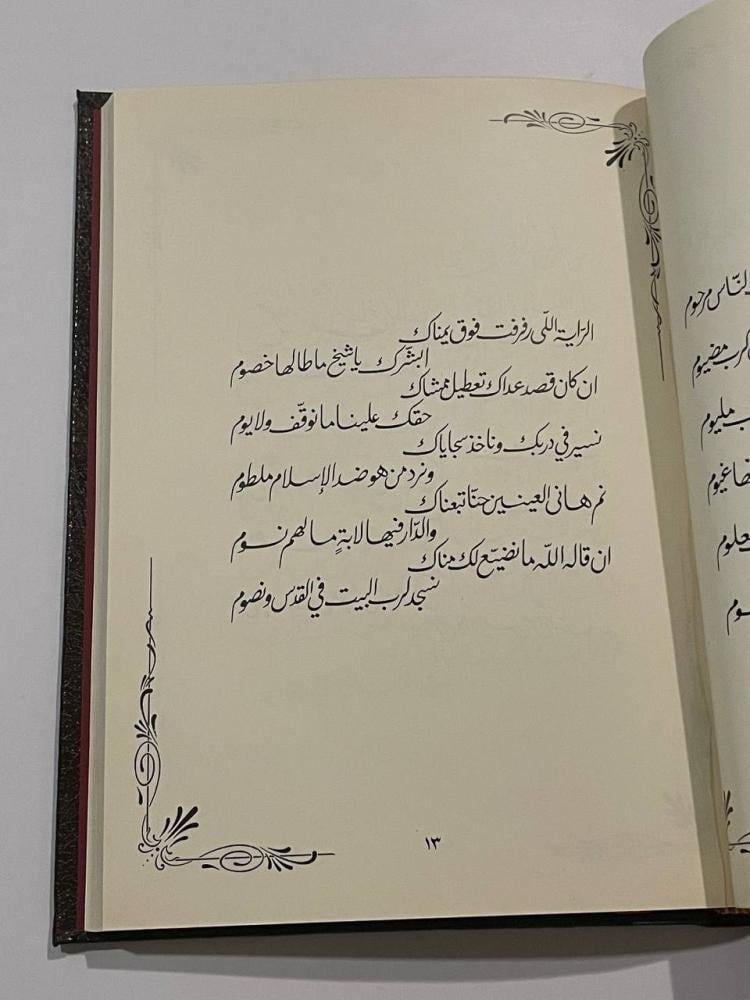 الرّاية اللّي رفرفت فوق يمناك
ابشّرك ياشيخ ماطالها خصوم
ان كان قصد عداك تعطيل ممشاك
حقك علينا مانوقّف ولايوم
نسير في دربك وناخذ سجاياك
ونرد من هو ضد الإسلام ملطوم
نم هاني العينين حنّا تبعناك
والدّار فيها لابةٍ مالهم نوم
ان قاله اللّه مانضيّع لك مناك
نسجد لرب البيت في القدس ونصوم
١٣
النّاس مرحوم
كرب مضيوم
مليوم
غيوم